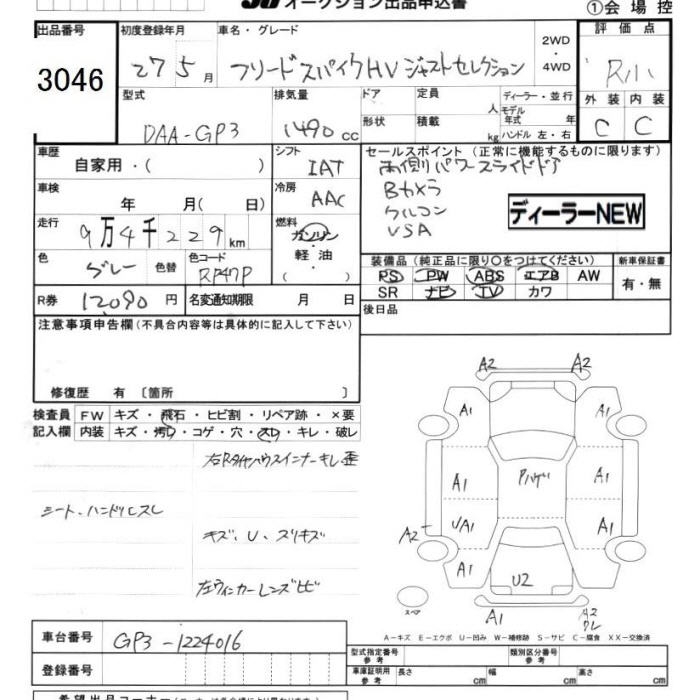 オークション出品申込書
①会場控
出品番号
3046
初度登録年月
27 5 月
車名・グレード
フリードスパイクHV ジャストセレクション
2WD
・
4WD
評価点
R
外装 内装
C C
型式
DAA-GP3
排気量
1490 cc
ドア
形状
定員 人
積載 kg
ディーラー・並行
モデル
年式 年
ハンドル 左・右
車歴
自家用・( )
シフト
IAT
セールスポイント (正常に機能するものに限ります)
両側パワースライドドア
Bカメラ
クルコン
USA
ディーラーNEW
車検
年 月(日)
冷房
AAC
走行
9万4千229km
燃料
ガソリン
軽油
( )
色
グレー
色替
色コード
RP47P
装備品 (純正品に限り○をつけてください)
PS PW ABS エアB AW
SR ナビ TV カワ
新車保証書
有・無
R券
12,090 円
名変通知期限 月 日
後日品
注意事項申告欄 (不具合内容等は具体的に記入して下さい)
修復歴 有 〔箇所 〕
検査員
記入欄
FW キズ・飛石・ヒビ割・リペア跡・×要
内装 キズ・汚レ・コゲ・穴・スレ・キレ・破レ
右Rタイヤハウスインナーキレ歪
シート、ハンドルスレ
キズ・U・スリキズ
左ウィンカーレンズヒビ
A2 A2
A1 A1
A1 A1
UA1 A1
A2
A1 U2 A1
スペア
A1 A2
A-キズ E-エクボ U-凹み W-補修跡 S-サビ C-腐食 XX-交換済
車台番号
GP3-1224016
登録番号
型式指定番号
参考
類別区分番号
参考
車庫証明用
参考
長さ cm 幅 cm 高さ cm
希望出品コーナー